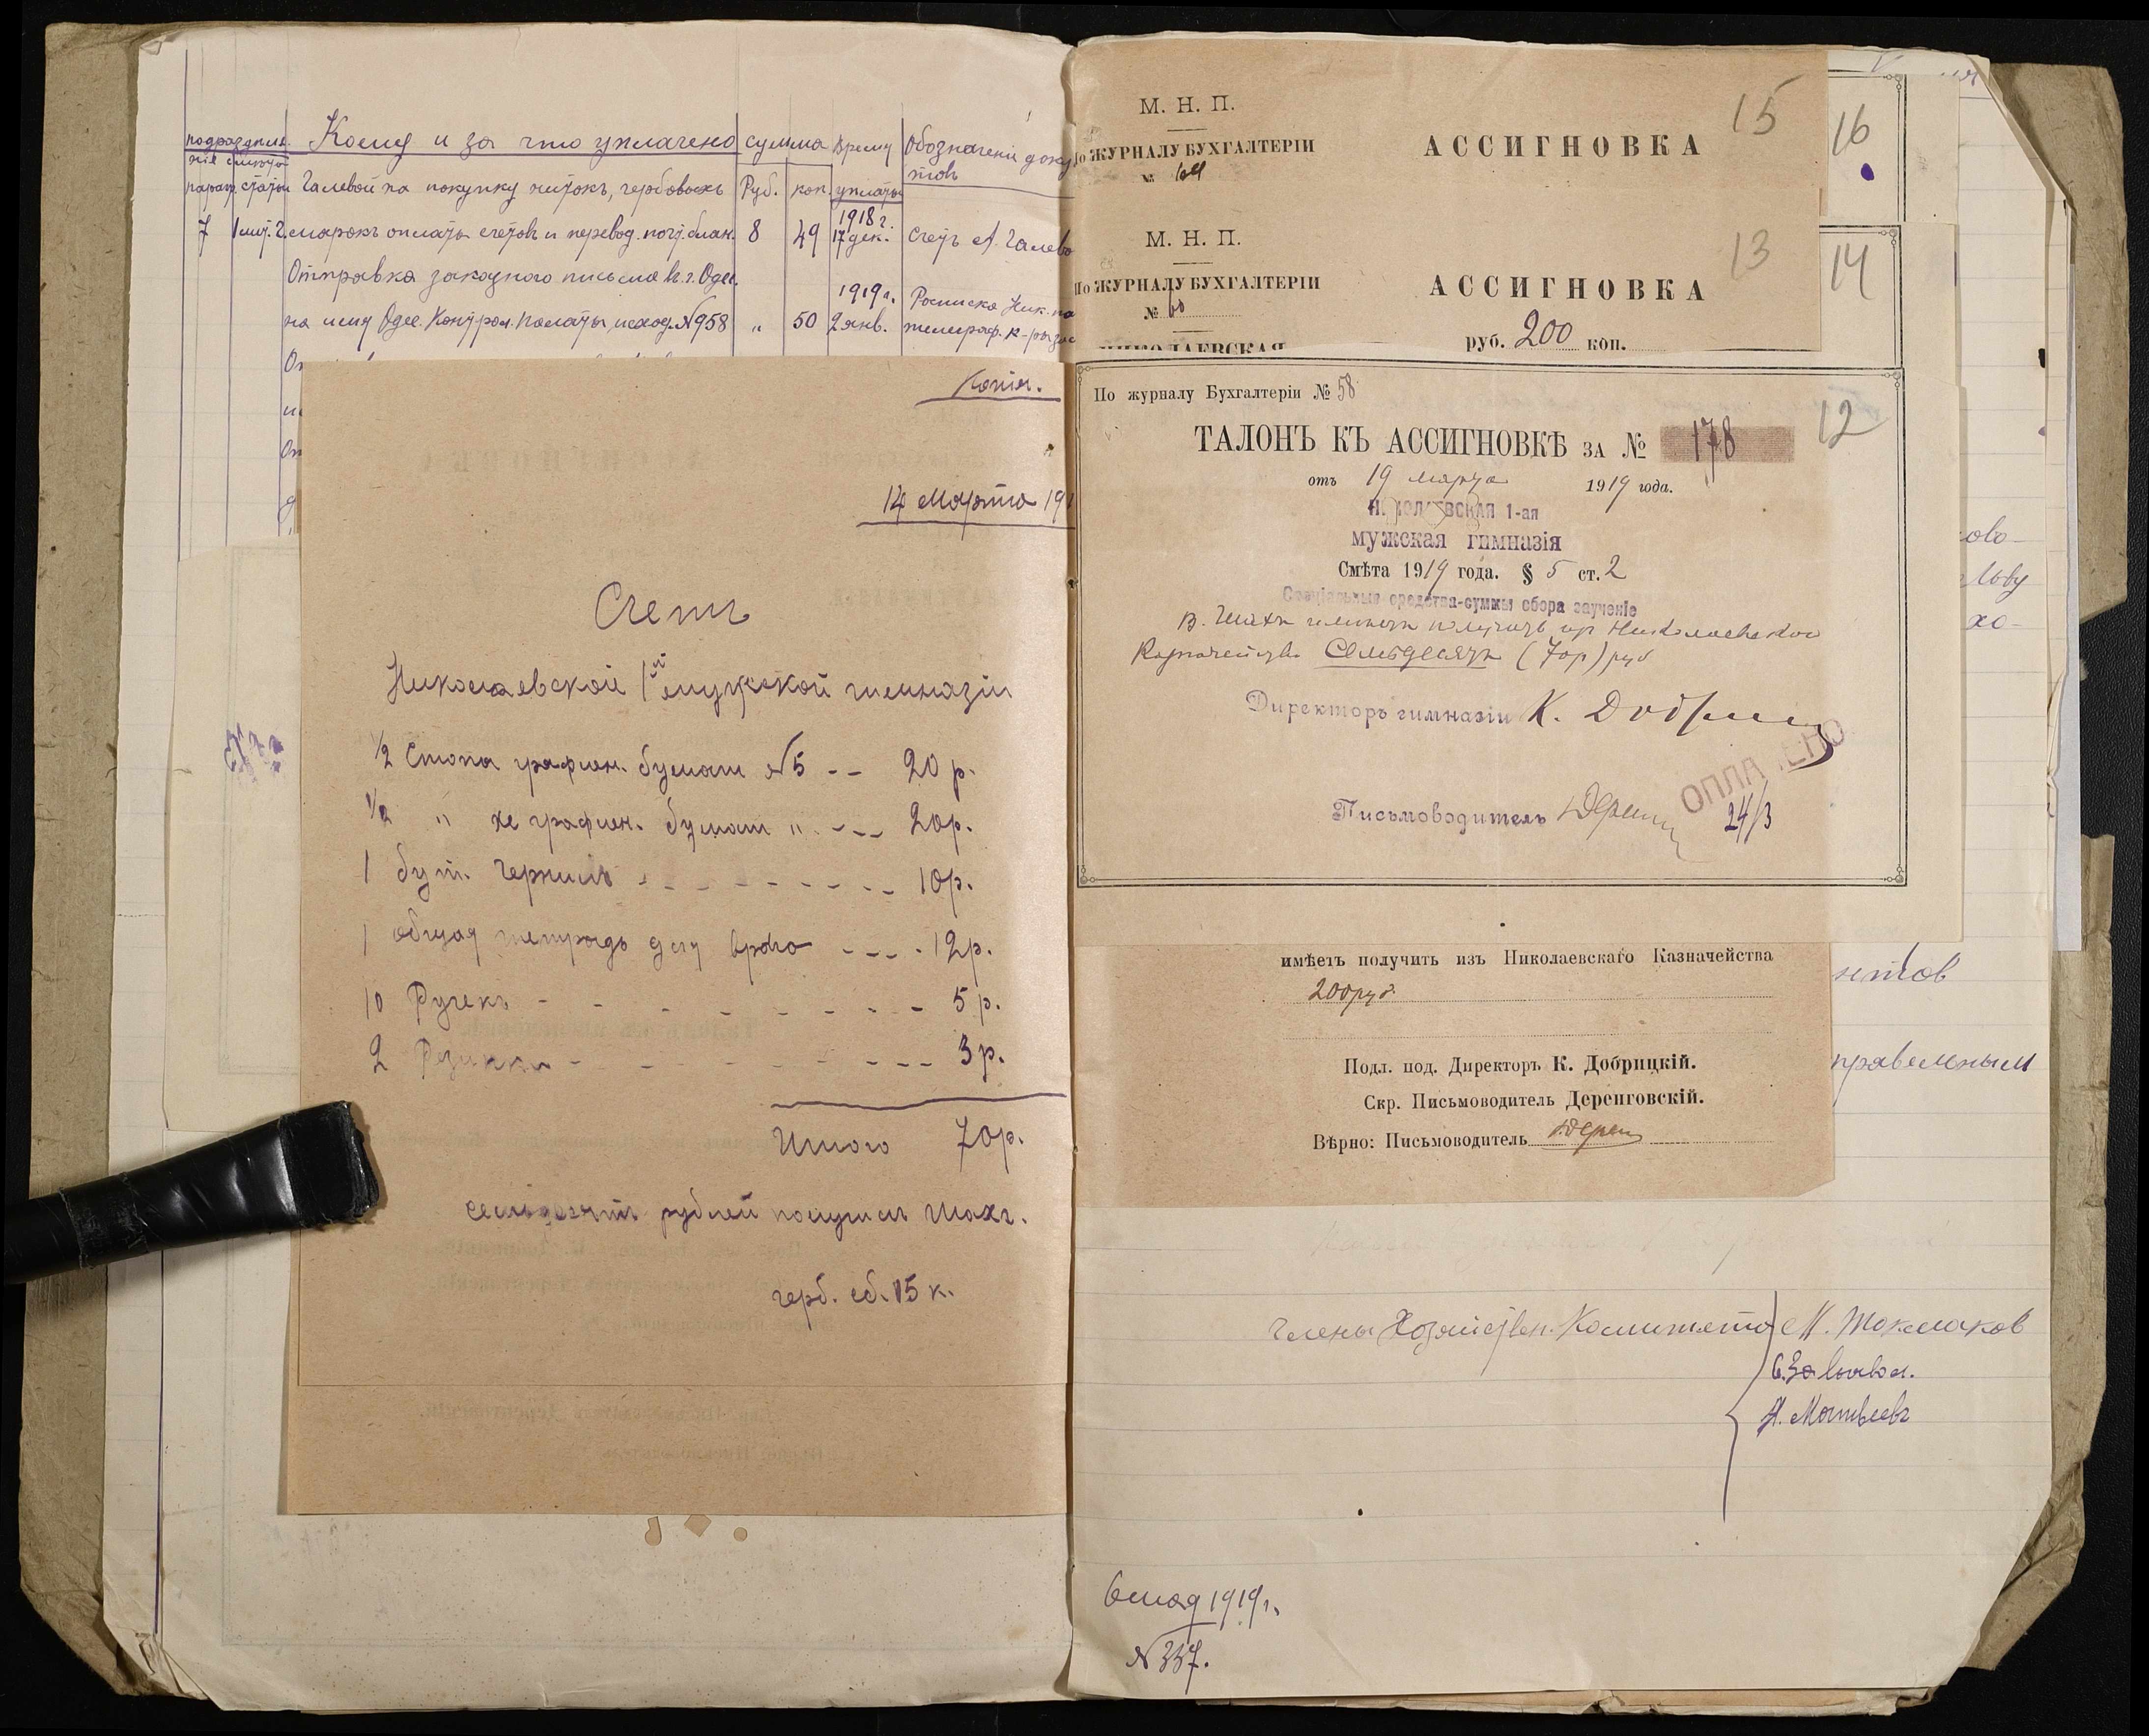 подраздѣле- Кому и за что уплачено сумма Время Обозначенія доку
нія смѣты
параг. статьи Галевой на покупку нитокъ, гербовыхъ Руб. коп. уплаты
7 1 лит. 2. марокъ оплаты счетовъ и перевод. почт. блан. 8 49 1918 г. 17 дек. Счетъ А. Галево
Отправка заказного письма въ г. Одес.
на имя Одес. Контрол. Палаты, исход. № 958 „ 50 1919 г. 2 янв. Росписка Ник. по
телеграф. к-ры за
Копія.
14 Марта 191
Счетъ
Николаевской 1й мужской гимназіи
1/2 Стопа графлен. бумаги №5 -- 20 р.
1/2 " не графлен. бумаги " --- 20р.
1 бут. чернилъ - - - - - - - - 10р.
1 общая тетрадь для ---- 12р.
10 Ручекъ - - - - - - - - 5 р.
2 Резинки - - - - - - - - 3 р.
Итого 70р.
семьдесятъ рублей получилъ Шахъ.
герб. сб. 15 к.
М. Н. П.
По ЖУРНАЛУ БУХГАЛТЕРІИ
АССИГНОВКА
15
16
М. Н. П.
По ЖУРНАЛУ БУХГАЛТЕРІИ
№ 60
НИКОЛАЕВСКАЯ
АССИГНОВКА
13
14
руб. 200 коп.
По журналу Бухгалтеріи № 58
12
ТАЛОНЪ КЪ АССИГНОВКѢ ЗА № 178
отъ 19 марта 1919 года.
НИКОЛАЕВСКАЯ 1-ая
МУЖСКАЯ ГИМНАЗІЯ
Смѣта 1919 года. § 5 ст. 2
Спеціальныя средства-суммы сбора за ученіе
В. Шахъ имѣетъ получить изъ Николаевского
Казначейства Семьдесятъ (70р) руб
Директоръ гимназіи К. Добрицкій
ОПЛАЧЕНО
Письмоводитель Дерен
24/3
имѣетъ получить изъ Николаевскаго Казначейства
200 руб.
Подл. под. Директоръ К. Добрицкій.
Скр. Письмоводитель Деренговскій.
Вѣрно: Письмоводитель Дерен
нтов
правельным
Члены Хозяйствен. Комитета М. Токмаков
Н. Матвѣевъ
6 мая 1919 г.
№ 337.